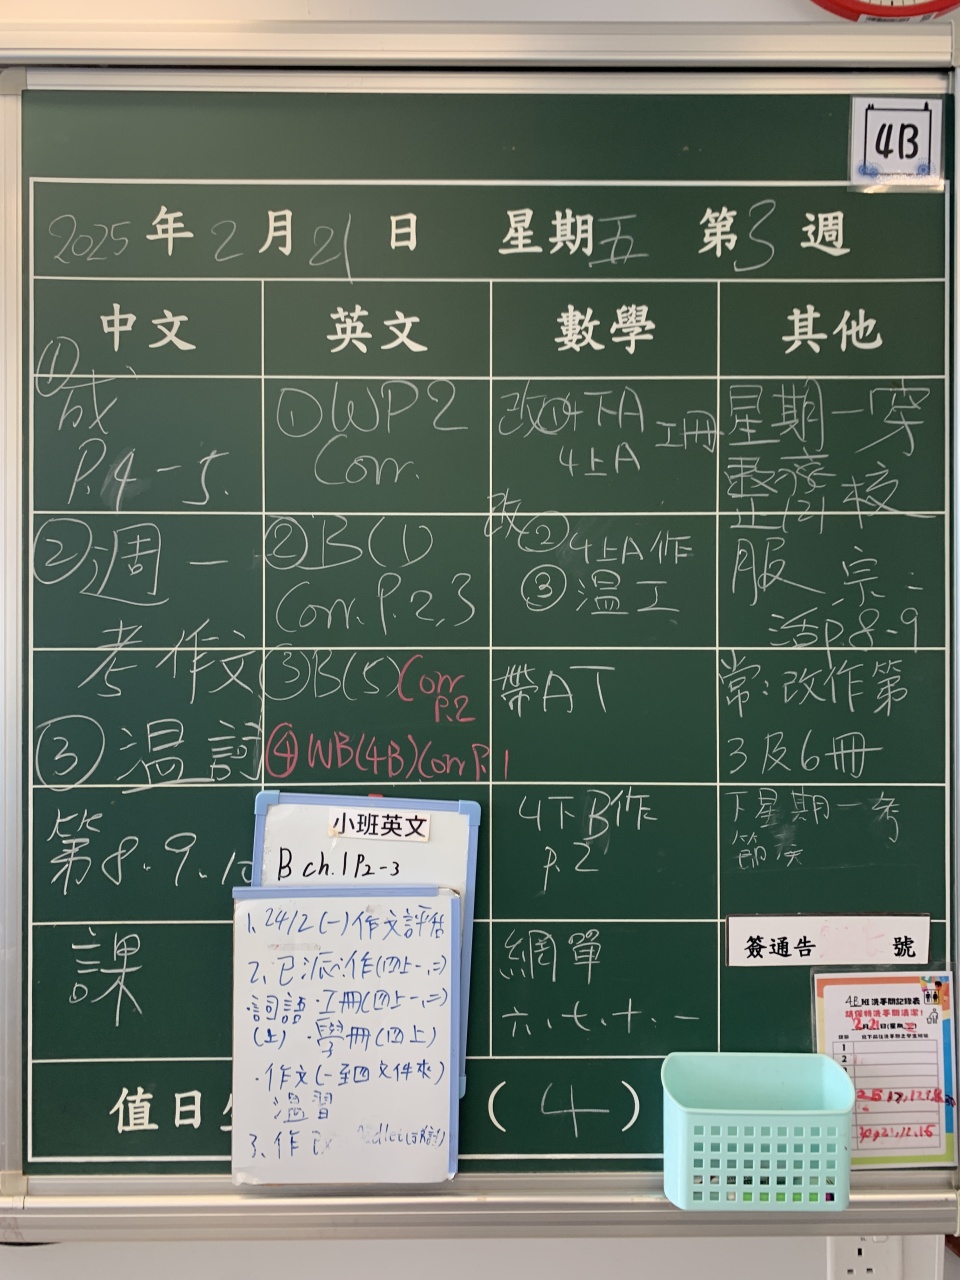 4B
2025年2月21日 星期五 第3週
中文 英文 數學 其他
①
成
P.4-5.
②週一
考作文
③溫詞
第8.9.10
課
①WP2
Corr.
②B(1)
Corr.P.2,3
③B(5)Corr
P.2
④WB(4B)Corr P.1
小班英文
B ch.1 P2-3
1. 24/2(一)作文評估
2. 已派作(四上一,二)
·詞語·工冊(四上一,二)
(上)·學冊(四上)
·作文(一至四文件夾)
溫習
3.作
改①4下A 工冊
4上A
改②4上A作
③溫工
帶AT
4下B作
P.2
網單
六.七.十.一
星期一穿
整齊校
服
宗:
活P.8-9
常:改作第
3及6冊
下星期一考
簽通告 號
4B班洗手間記錄表
請保持洗手間清潔!
2月21日(星期五)
1
2
值日生
(4)